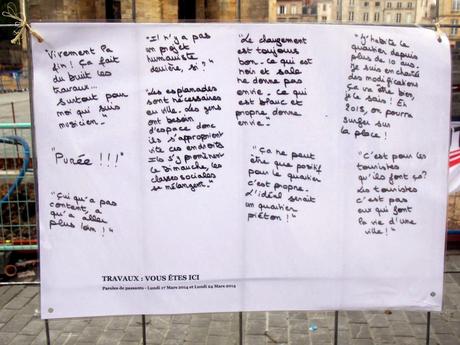 "Vivement la
fin ! Ça fait
du bruit les
travaux...
surtout pour
moi qui suis
musicien."
"Purée !!!"
"Qui qu'a pas
content, a
qu'à aller
plus loin !"
"Il n'y a pas
un projet
humaniste
derrière, si ?"
"Les esplanades
sont nécessaires
en ville. Les gens
ont besoin
d'espace donc
ils s'approprient
vite ces endroits
Ils s'y promènent
le Dimanche, les
classes sociales
se mélangent."
"Le changement
est toujours
bon. Ce qui est
noir et sale
ne donne pas
envie. Ce qui
est blanc et
propre donne
envie."
"Ça ne peut
être que positif
pour le quartier
c'est propre.
L'idéal serait
un quartier
piéton !"
"J'habite le
quartier depuis
plus de 10 ans.
Je suis enchanté
des modifications
Ça va être bien,
je le sais ! En
2015, on pourra
surfer sur
la place !
"C'est pour les
touristes
qu'ils font ça ?
Les touristes
c'est pas
eux qui font
la vie d'une
ville !"
TRAVAUX : VOUS ÊTES ICI
Paroles de passants - Lundi 17 Mars 2014 et Lundi 24 Mars 2014